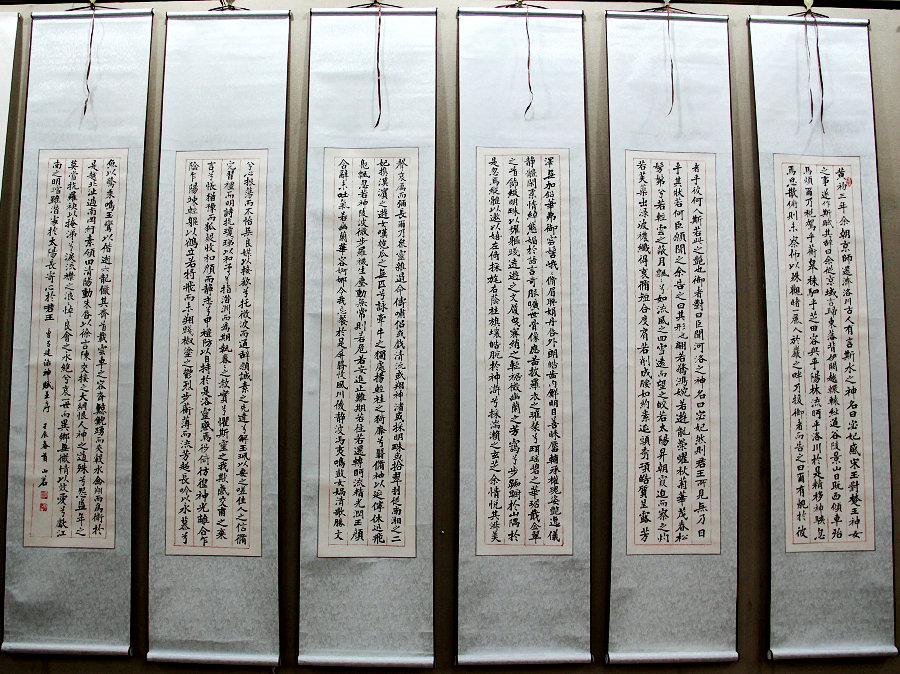 黄初三年余朝京師還濟洛川古人有言斯水之神名曰宓妃感宋玉對楚王神女
之事遂作斯賦其辭曰余從京域言歸東藩背伊闕越轘轅經通谷陵景山日既西傾車殆
馬煩爾乃稅駕乎蘅皋秣駟乎芝田容與乎陽林流眄乎洛川於是精移神駭忽
焉思散俯則未察仰以殊觀睹一麗人於巖之畔乃援御者而告之曰爾有覿於彼
者乎彼何人斯若此之艷也御者對曰臣聞河洛之神名曰宓妃然則君王所見無乃日
乎其狀若何臣願聞之余告之曰其形也翩若驚鴻婉若遊龍榮曜秋菊華茂春松
髣髴兮若輕雲之蔽月飄飖兮若流風之回雪遠而望之皎若太陽昇朝霞迫而察之灼
若芙蕖出淥波襛纖得衷脩短合度肩若削成腰如約素延頸秀項皓質呈露芳
澤無加鉛華弗御雲髻峨峨脩眉聯娟丹唇外朗皓齒內鮮明眸善睞靨輔承權瓌姿艷逸儀
靜體閑柔情綽態媚於語言奇服曠世骨像應圖披羅衣之璀粲兮珥瑤碧之華琚戴金翠
之首飾綴明珠以耀軀踐遠遊之文履曳霧綃之輕裾微幽蘭之芳藹兮步踟躕於山隅於
是忽焉縱體以遨以嬉左倚採旄右蔭桂旗攘皓腕於神滸兮採湍瀨之玄芝余情悅其淑美
聲哀厲而彌長爾乃衆靈雜遝命儔嘯侶或戲清流或翔神渚或採明珠或拾翠羽從南湘之二
妃攜漢濱之遊女嘆匏瓜之無匹兮詠牽牛之獨處揚輕袿之猗靡兮翳脩袖以延佇體迅飛
鳧飄忽若神陵波微步羅襪生塵動無常則若危若安進止難期若往若還轉眄流精光潤玉顏
含辭未吐氣若幽蘭華容婀娜令我忘餐於是屏翳收風川后靜波馮夷鳴鼓女媧清歌騰文
兮心振蕩而不怡無良媒以接歡兮托微波而通辭願誠素之先達兮解玉珮以要之嗟佳人之信脩
羌習禮而明詩抗瓊珶以和予兮指潛淵而為期執眷眷之款實兮懼斯靈之我欺感交甫之棄
言兮悵猶豫而狐疑收和顏而靜志兮申禮防以自持於是洛靈感焉徙倚彷徨神光離合乍
陰乍陽竦輕軀以鶴立若將飛而未翔踐椒塗之鬱烈步蘅薄而流芳超長吟以永慕兮
魚以警乘鳴玉鸞以偕逝六龍儼其齊首載雲車之容裔鯨鯢踴而夾轂水禽翔而為衛於
是越北沚過南岡紆素領回清陽動朱唇以徐言陳交接之大綱恨人神之道殊兮怨盛年之
莫當抗羅袂以掩涕兮淚流襟之浪浪悼良會之永絕兮哀一逝而異鄉無微情以效愛兮獻江
南之明璫雖潛處於太陰長寄心於君王 曹子建洛神賦 壬辰春 山石